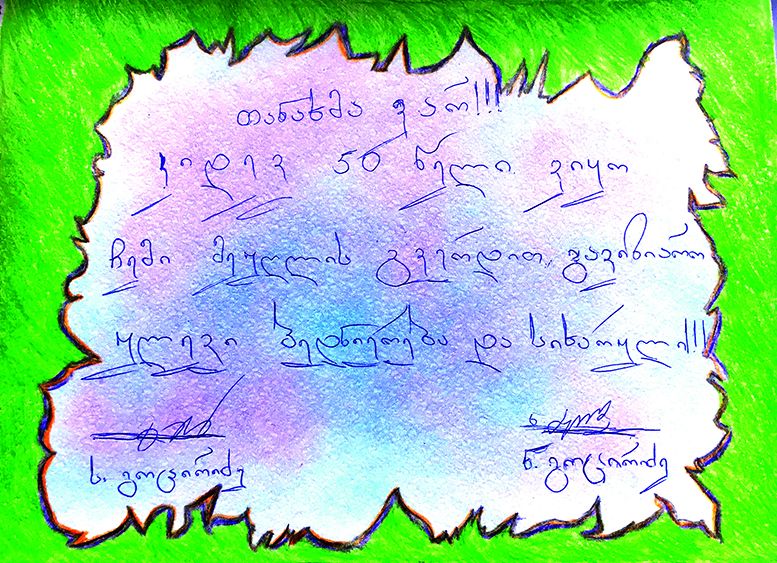 თანახმა ვარ!!!
კიდევ 50 წელი ვიყო
ჩემი მეუღლის გვერდით, გავიზიარო
ულევი ბედნიერება და სიხარული!!!
ს. გოცირიძე ნ. გოცირიძე